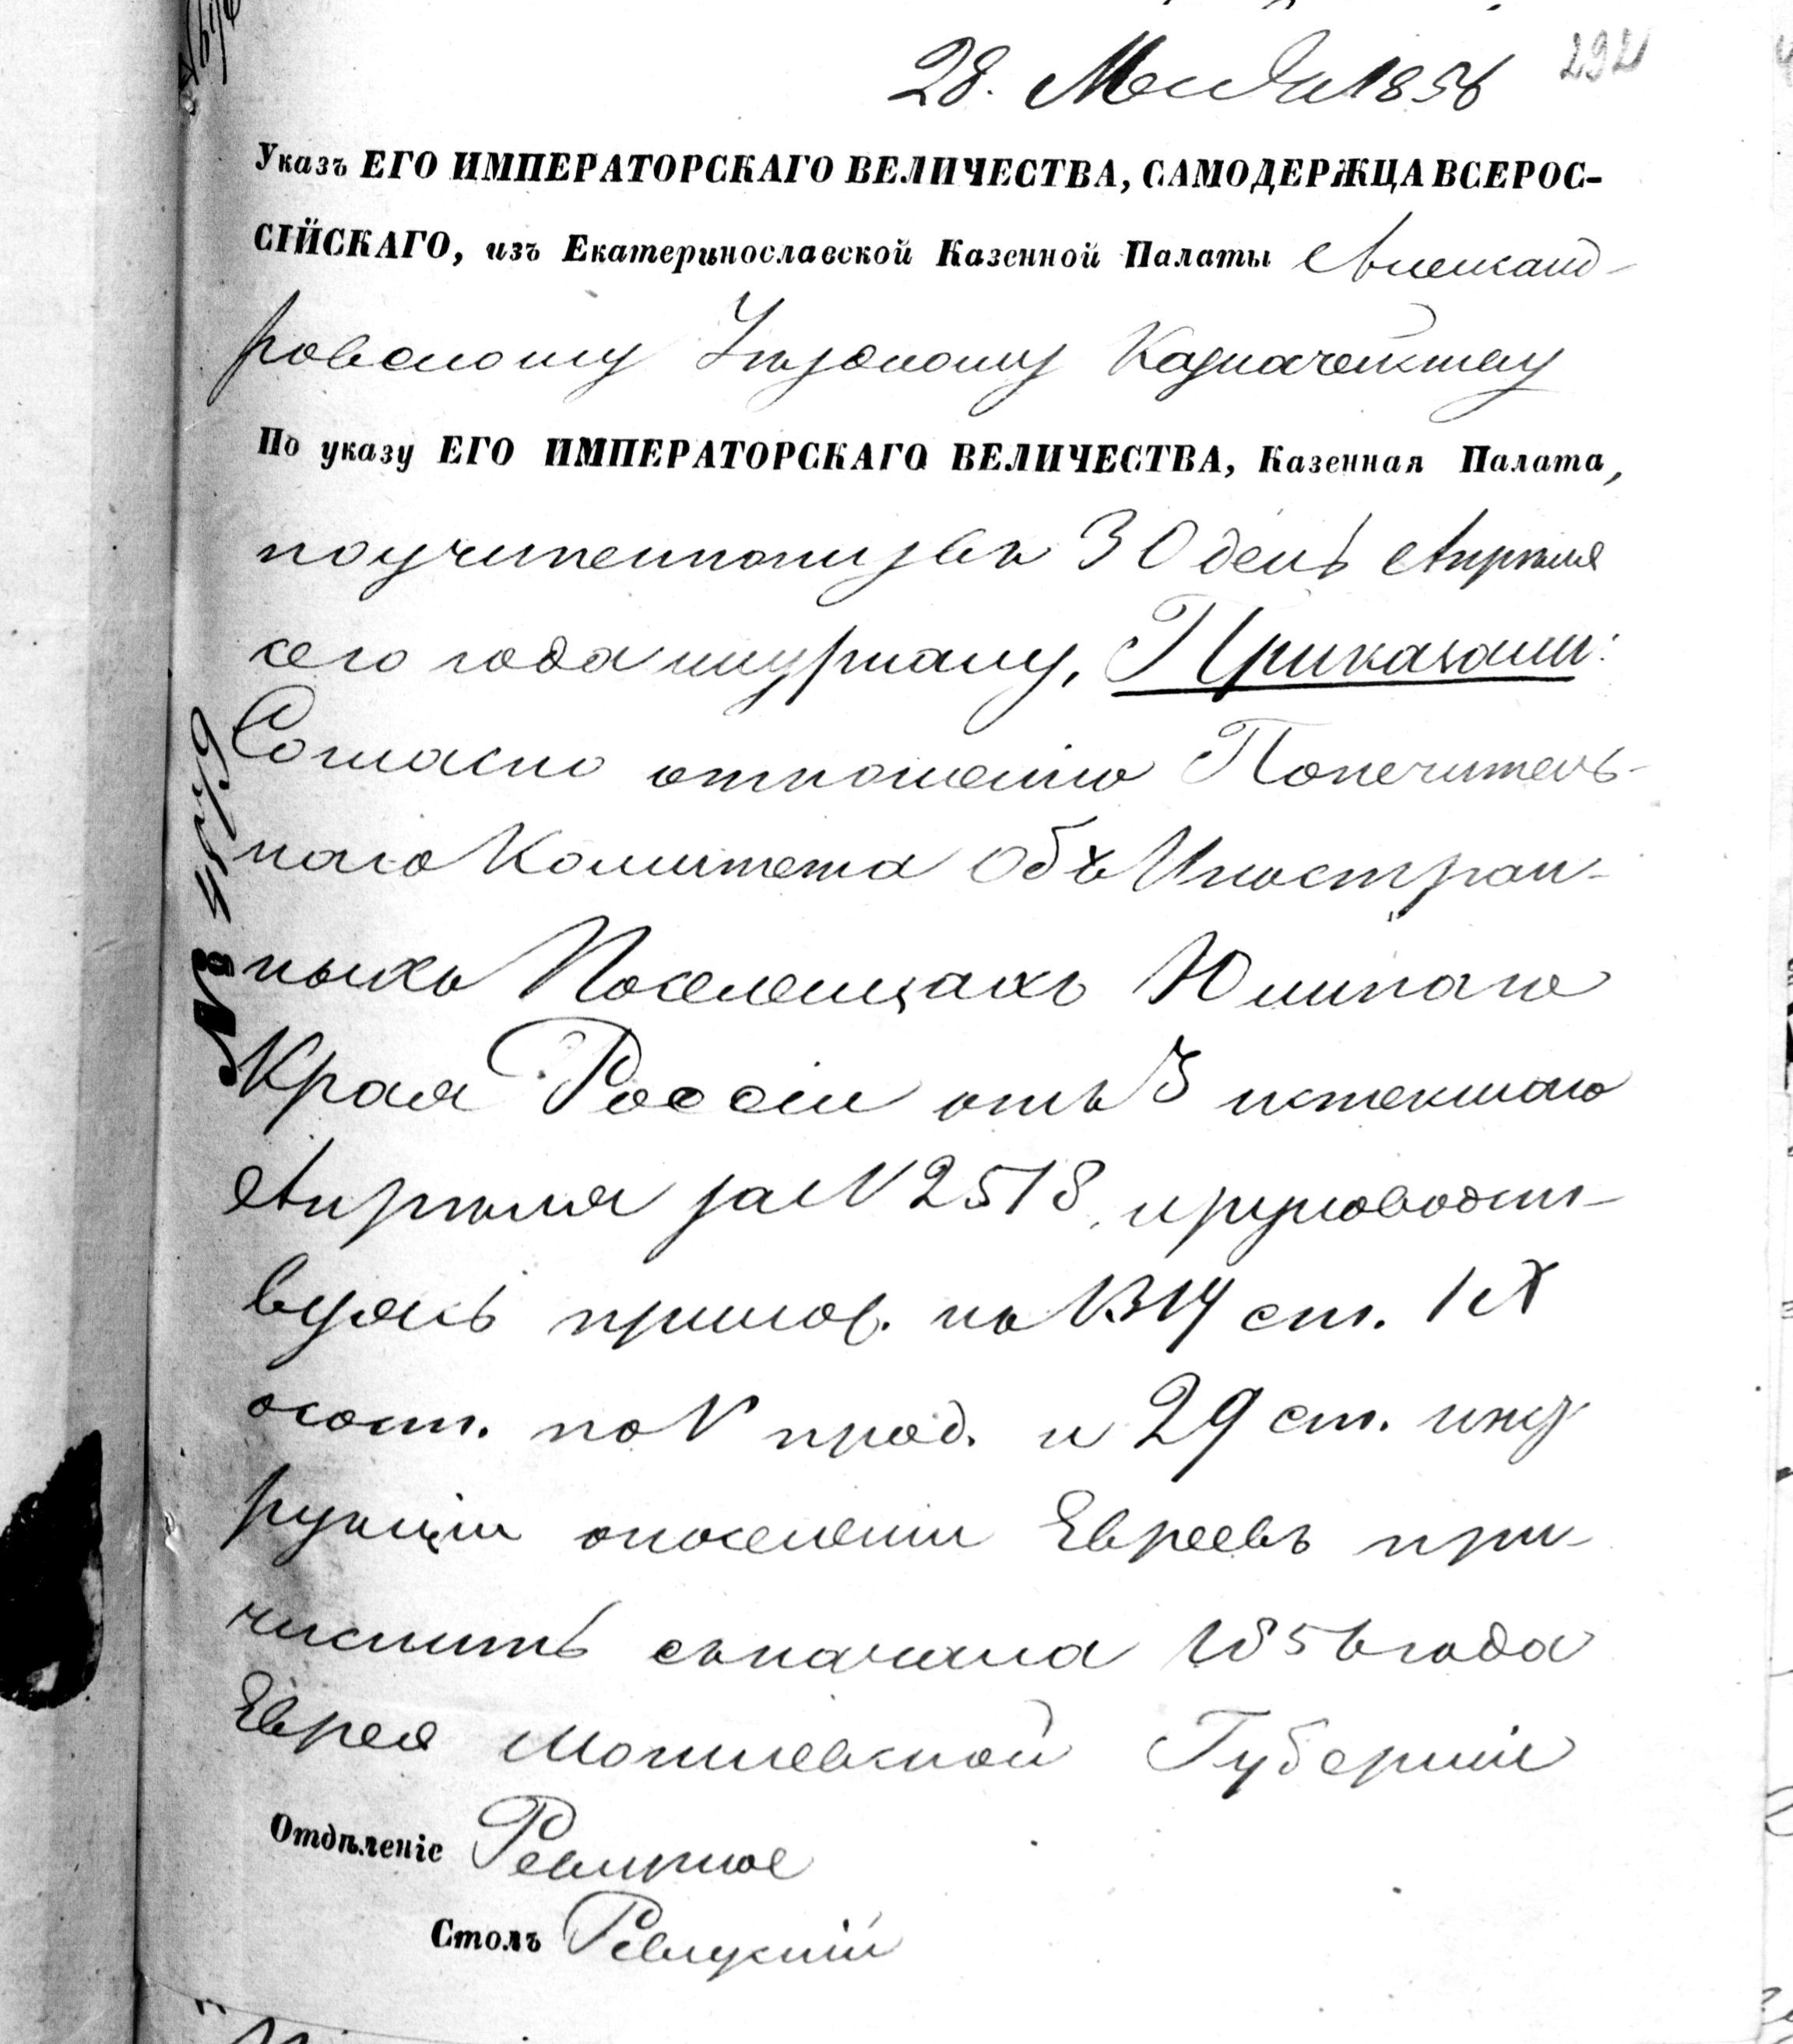 28. Мая 1856
292
Указъ ЕГО ИМПЕРАТОРСКАГО ВЕЛИЧЕСТВА, САМОДЕРЖЦА ВСЕРОС-
СІЙСКАГО, изъ Екатеринославской Казенной Палаты Александ-
ровскому Уѣздному Казначейству
По указу ЕГО ИМПЕРАТОРСКАГО ВЕЛИЧЕСТВА, Казенная Палата,
по учиненному въ 30 день Апрѣля
сего года журналу, Приказали:
Согласно отношенію Попечитель-
наго Комитета Объ Иностран-
ныхъ Поселенцахъ Южнаго
Края Россіи отъ 3 истекшаго
Апрѣля за N 2518, и руководст-
вуясь примѣч. къ 1314 ст. IX
по V прод. и 29 ст. инст
рукціи о поселеніи Евреевъ при-
числить съ начала 1856 года
Еврея Могилевской Губерніи
Отдѣленіе Ревизское
Столъ Ревизскій
№ 4549